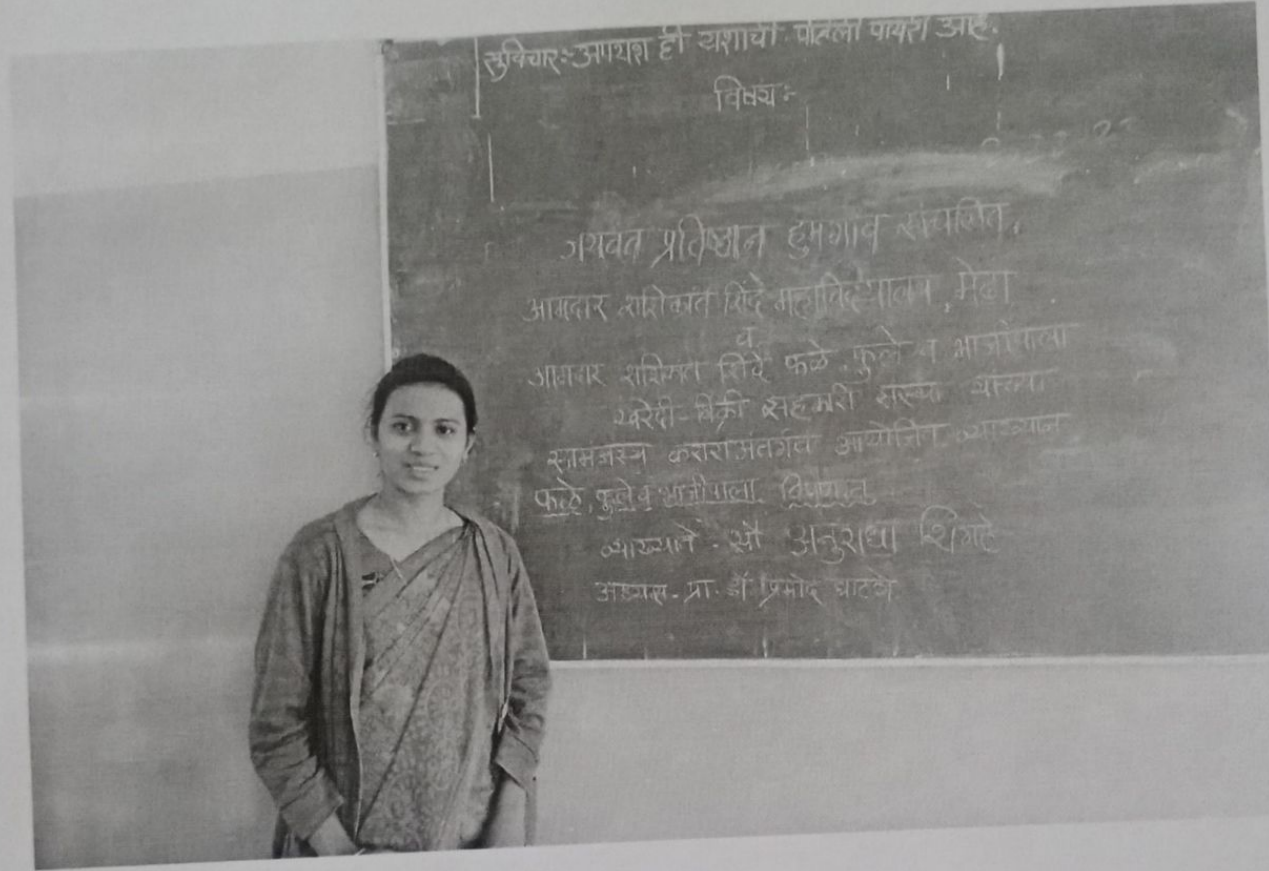 सुविचार:- अपयश ही यशाची पहिली पायरी आहे.
विषय:-
जयवंत प्रतिष्ठान हुमगाव संचलित,
आमदार शशिकांत शिंदे महाविद्यालय, मेढा
व
आमदार शशिकांत शिंदे फळे, फुले व भाजीपाला
खरेदी-विक्री सहकारी संस्था यांच्या
सामंजस्य करारांअतर्गत आयोजित व्याख्यान
फळे, फुले व भाजीपाला विपणन
व्याख्याते - सौ अनुराधा
अध्यक्ष - प्रा. डॉ प्रमोद घाटगे